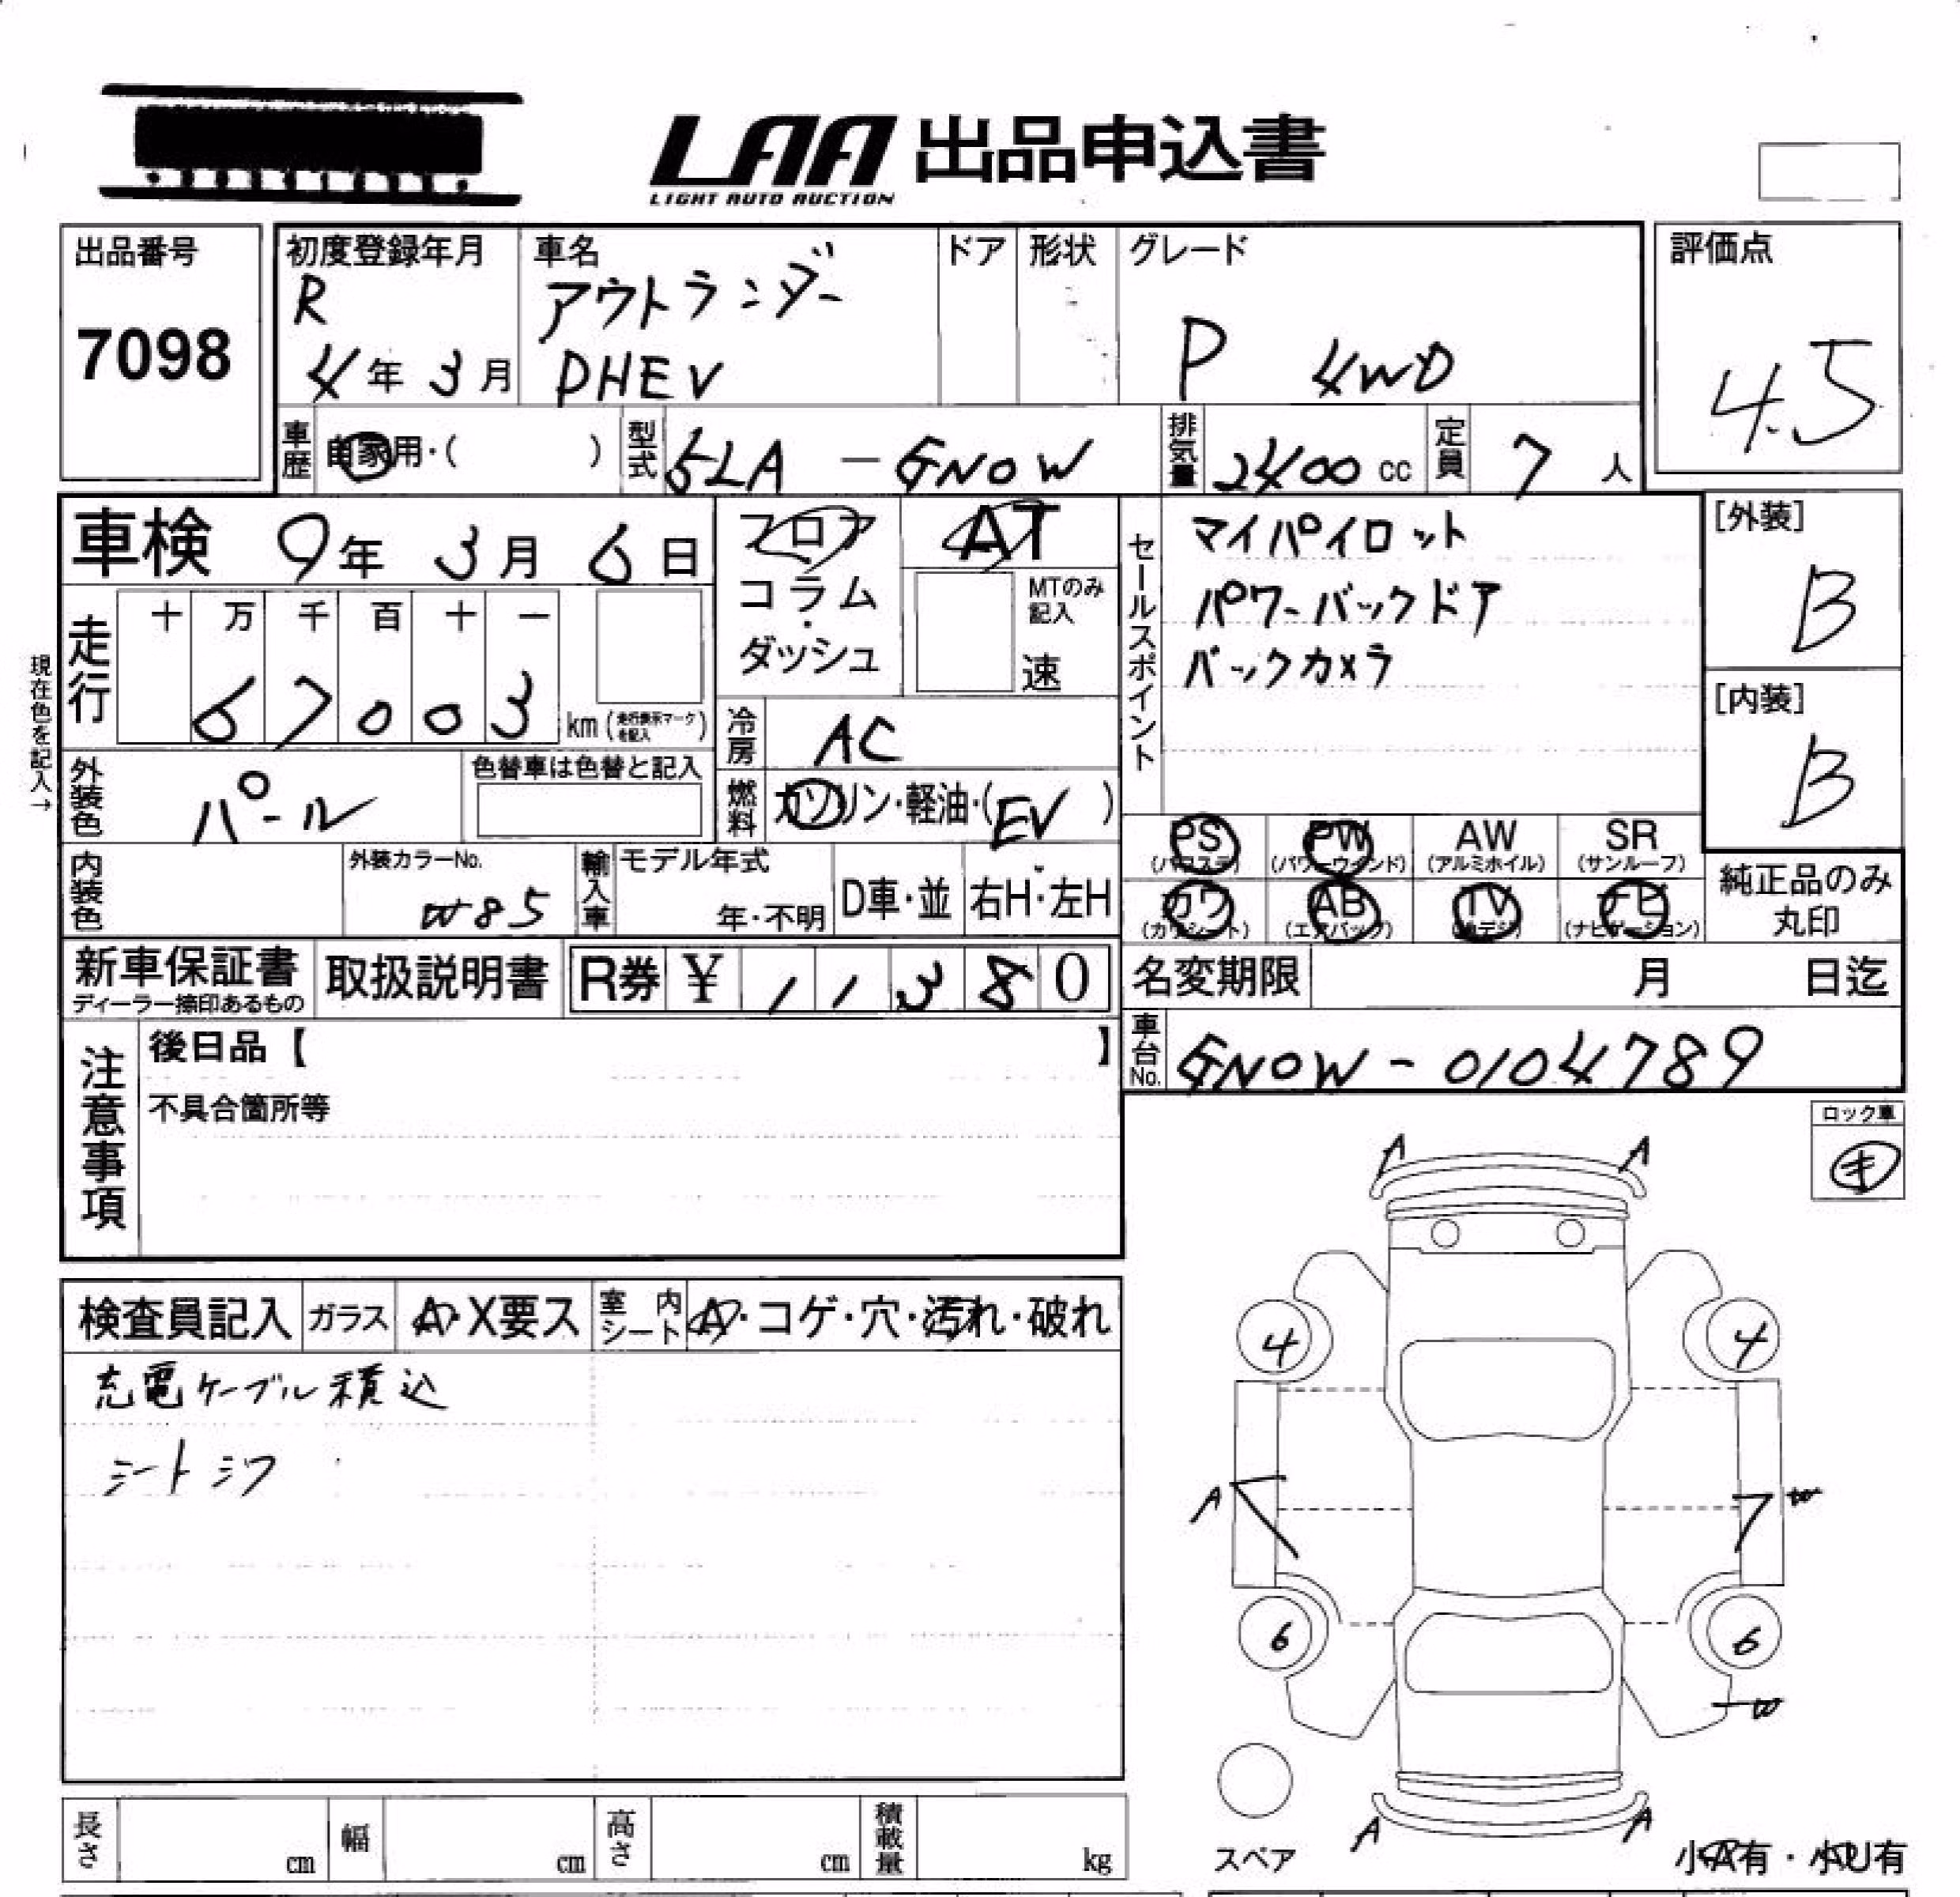 LAA 出品申込書
LIGHT AUTO AUCTION
出品番号
7098
初度登録年月
R
4年 3月
車名
アウトランダー
PHEV
ドア
形状
グレード
P 4WD
評価点
4.5
車歴
自家用・( )
型式
5LA - GN0W
排気量
2400 cc
定員
7 人
車検 9年 3月 6日
フロア
コラム・
ダッシュ
AT
MTのみ
記入
速
セールスポイント
マイパイロット
パワーバックドア
バックカメラ
[外装]
B
[内装]
B
現在色を記入→
走行
十 万 千 百 十 一
6 7 0 0 3
km (走行表示マークを記入)
冷房
AC
外装色
パール
色替車は色替と記入
燃料
ガソリン・軽油・(EV)
内装色
外装カラーNo.
W85
輸入車
モデル年式
年・不明
D車・並
右H・左H
PS
(パワステ)
PW
(パワーウインド)
AW
(アルミホイル)
SR
(サンルーフ)
カワ
(カワシート)
AB
(エアバッグ)
TV
(地デジ)
ナビ
(ナビゲーション)
純正品のみ
丸印
新車保証書
ディーラー捺印あるもの
取扱説明書
R券 ¥ 1 1 3 8 0
名変期限 月 日迄
車台No.
GN0W - 0104789
注意事項
後日品【 】
不具合箇所等
ロック車
キ
検査員記入
ガラス
A・X要ス
室内シート
A・コゲ・穴・汚れ・破れ
充電ケーブル積込
シートシワ
A A
4 4
A W
6 6
W
A A
スペア
小A有・小U有
長さ cm
幅 cm
高さ cm
積載量 kg